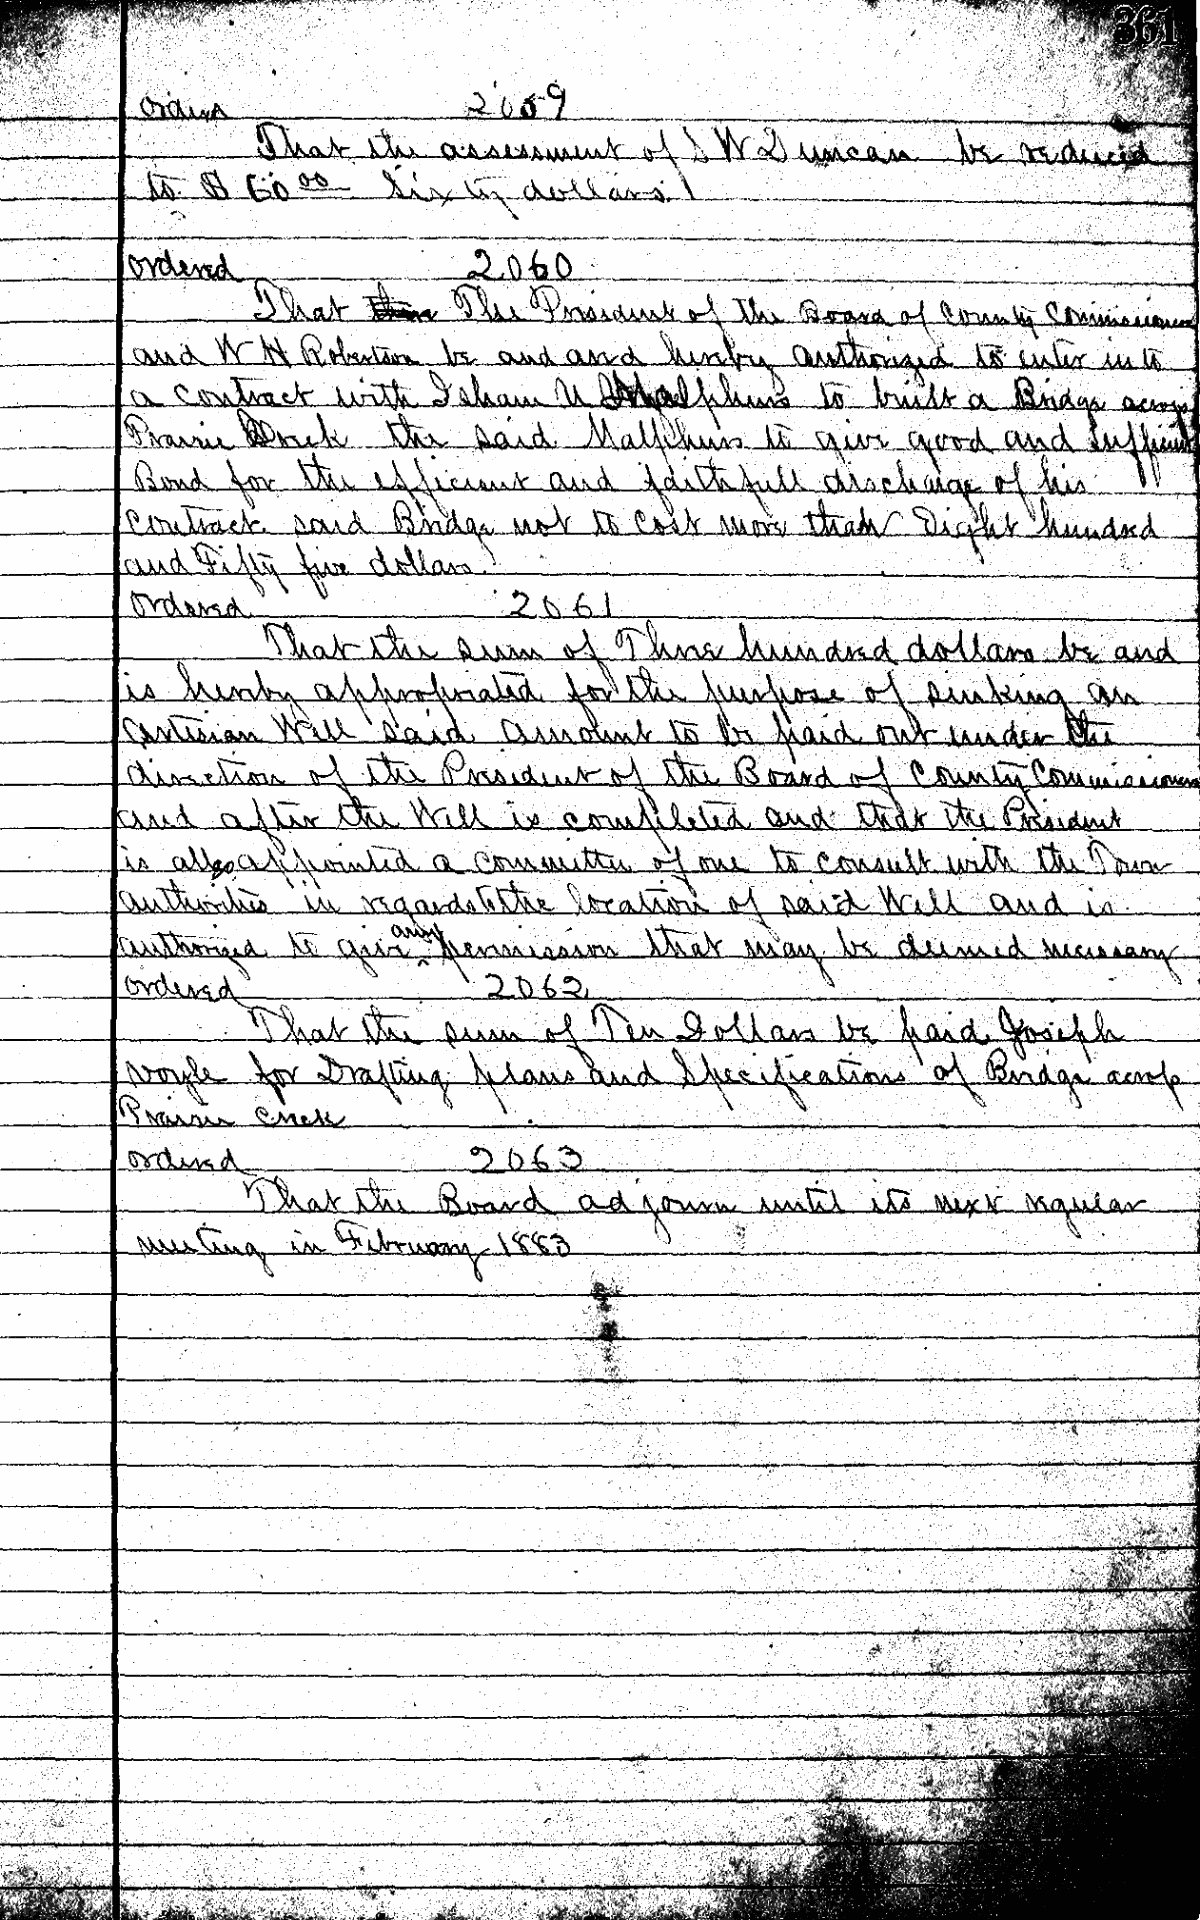 361
Orders 2059
That the assessment of S W Duncan be reduced
to $60.00 Sixty dollars
ordered 2060
That The President of the Board of County Commissioners
and W H Robertson be and and hereby authorized to enter into
a contract with Isham U Malphurs to built a Bridge across
Prairie Creek the said Malphurs to give good and sufficient
Bond for the efficient and faithfull discharge of his
contract said Bridge not to cost more than Eight hundred
and Fifty five dollars
Ordered 2061
That the sum of Three hundred dollars be and
is hereby appropriated for the purpose of sinking an
Artesian Well said amount to be paid out under the
direction of the President of the Board of County Commissioners
and after the Well is completed and that the President
is also appointed a committee of one to consult with the Town
authorities in regards to the location of said Well and is
authorized to give any permission that may be deemed necessary
ordered 2062
That the sum of Ten Dollars be paid Joseph
Voyle for Drafting plans and Specifications of Bridge across
Prairie Creek
ordered 2063
That the Board adjourn until its next regular
meeting in February 1883